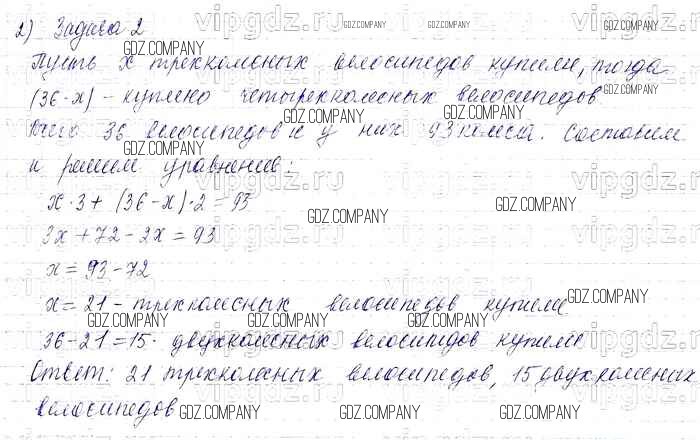 2) Задача 2
Пусть x трехколесных велосипедов купили, тогда
(36-x) - куплено четырехколесных велосипедов.
Всего 36 велосипедов и у них 93 колеса. Составим
и решим уравнение:
x·3+(36-x)·2=93
3x+72-2x=93
x=93-72
x=21 - трехколесных велосипедов купили
36-21=15 - двухколесных велосипедов купили
Ответ: 21 трехколесных велосипедов, 15 двухколесных
велосипедов